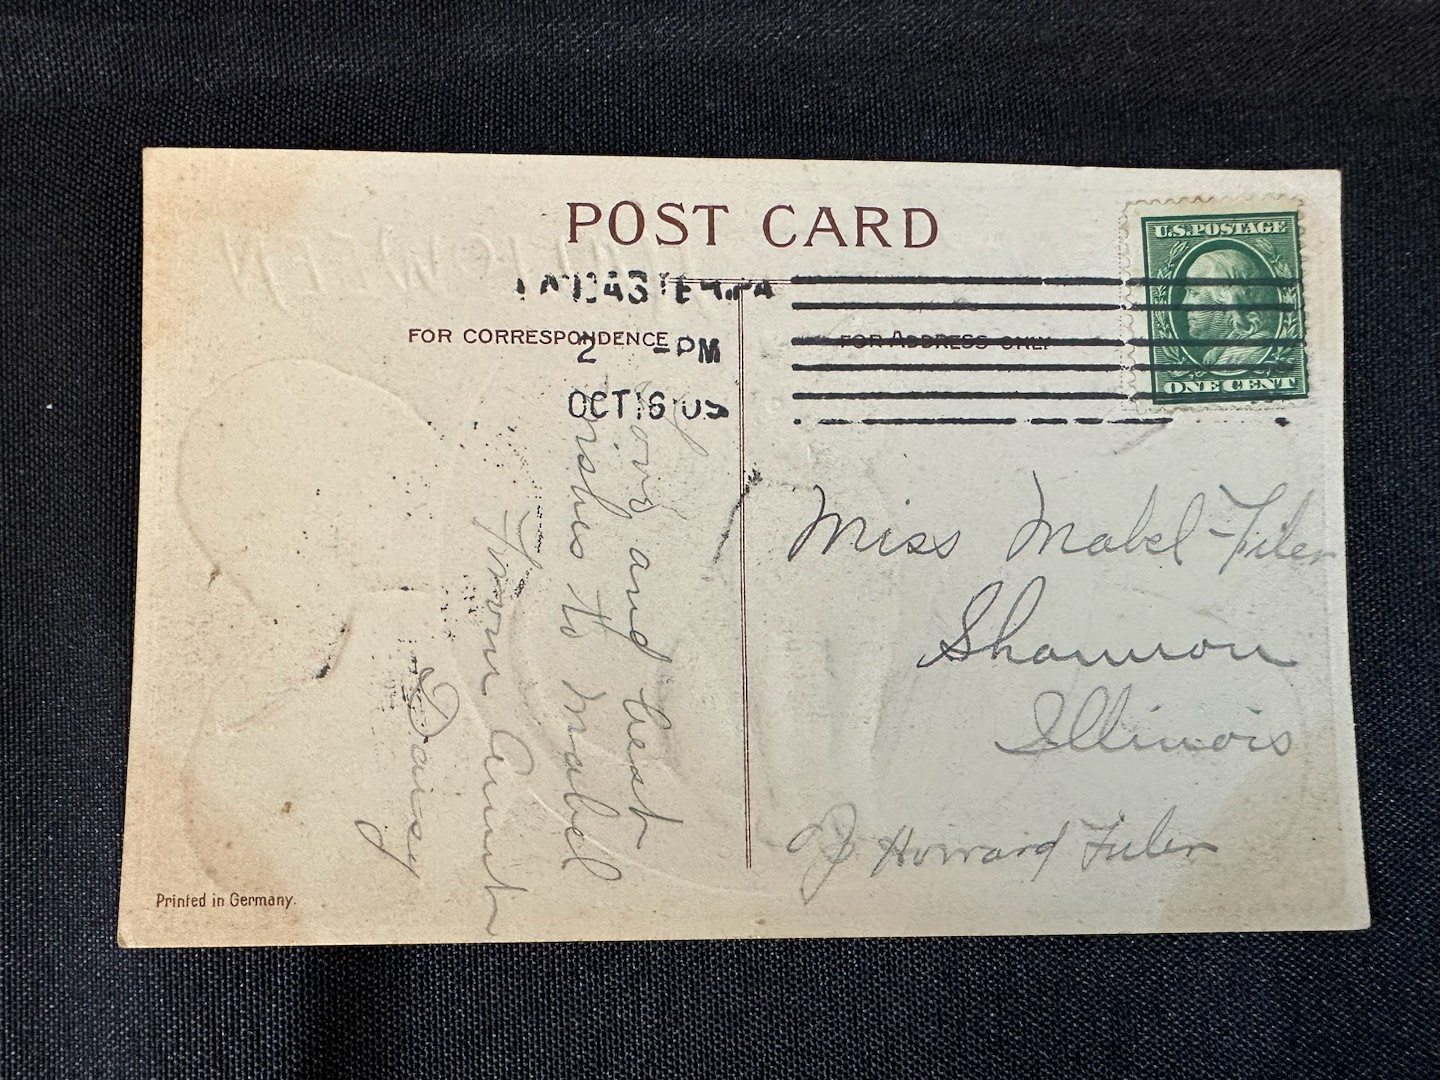 POST CARD
LANCASTER.PA
2 -PM
OCT 16 09
FOR CORRESPONDENCE
FOR ADDRESS ONLY
U.S. POSTAGE
ONE CENT
Love and best
wishes to Mabel
From Aunt
Daisy
Miss Mabel Filer
Shannon
Illinois
Howard Filer
Printed in Germany.
HALLOWEEN